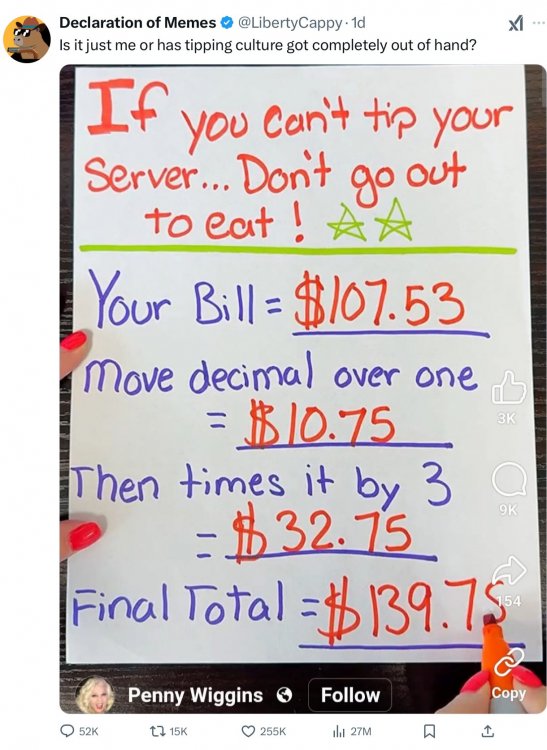 Declaration of Memes @LibertyCappy · 1d
Is it just me or has tipping culture got completely out of hand?
If you can't tip your
Server... Don't go out
to eat!
Your Bill = $107.53
Move decimal over one
= $10.75
Then times it by 3
= $32.75
Final Total = $139.75
3K
9K
154
Copy
Penny Wiggins
Follow
52K 15K 255K 27M